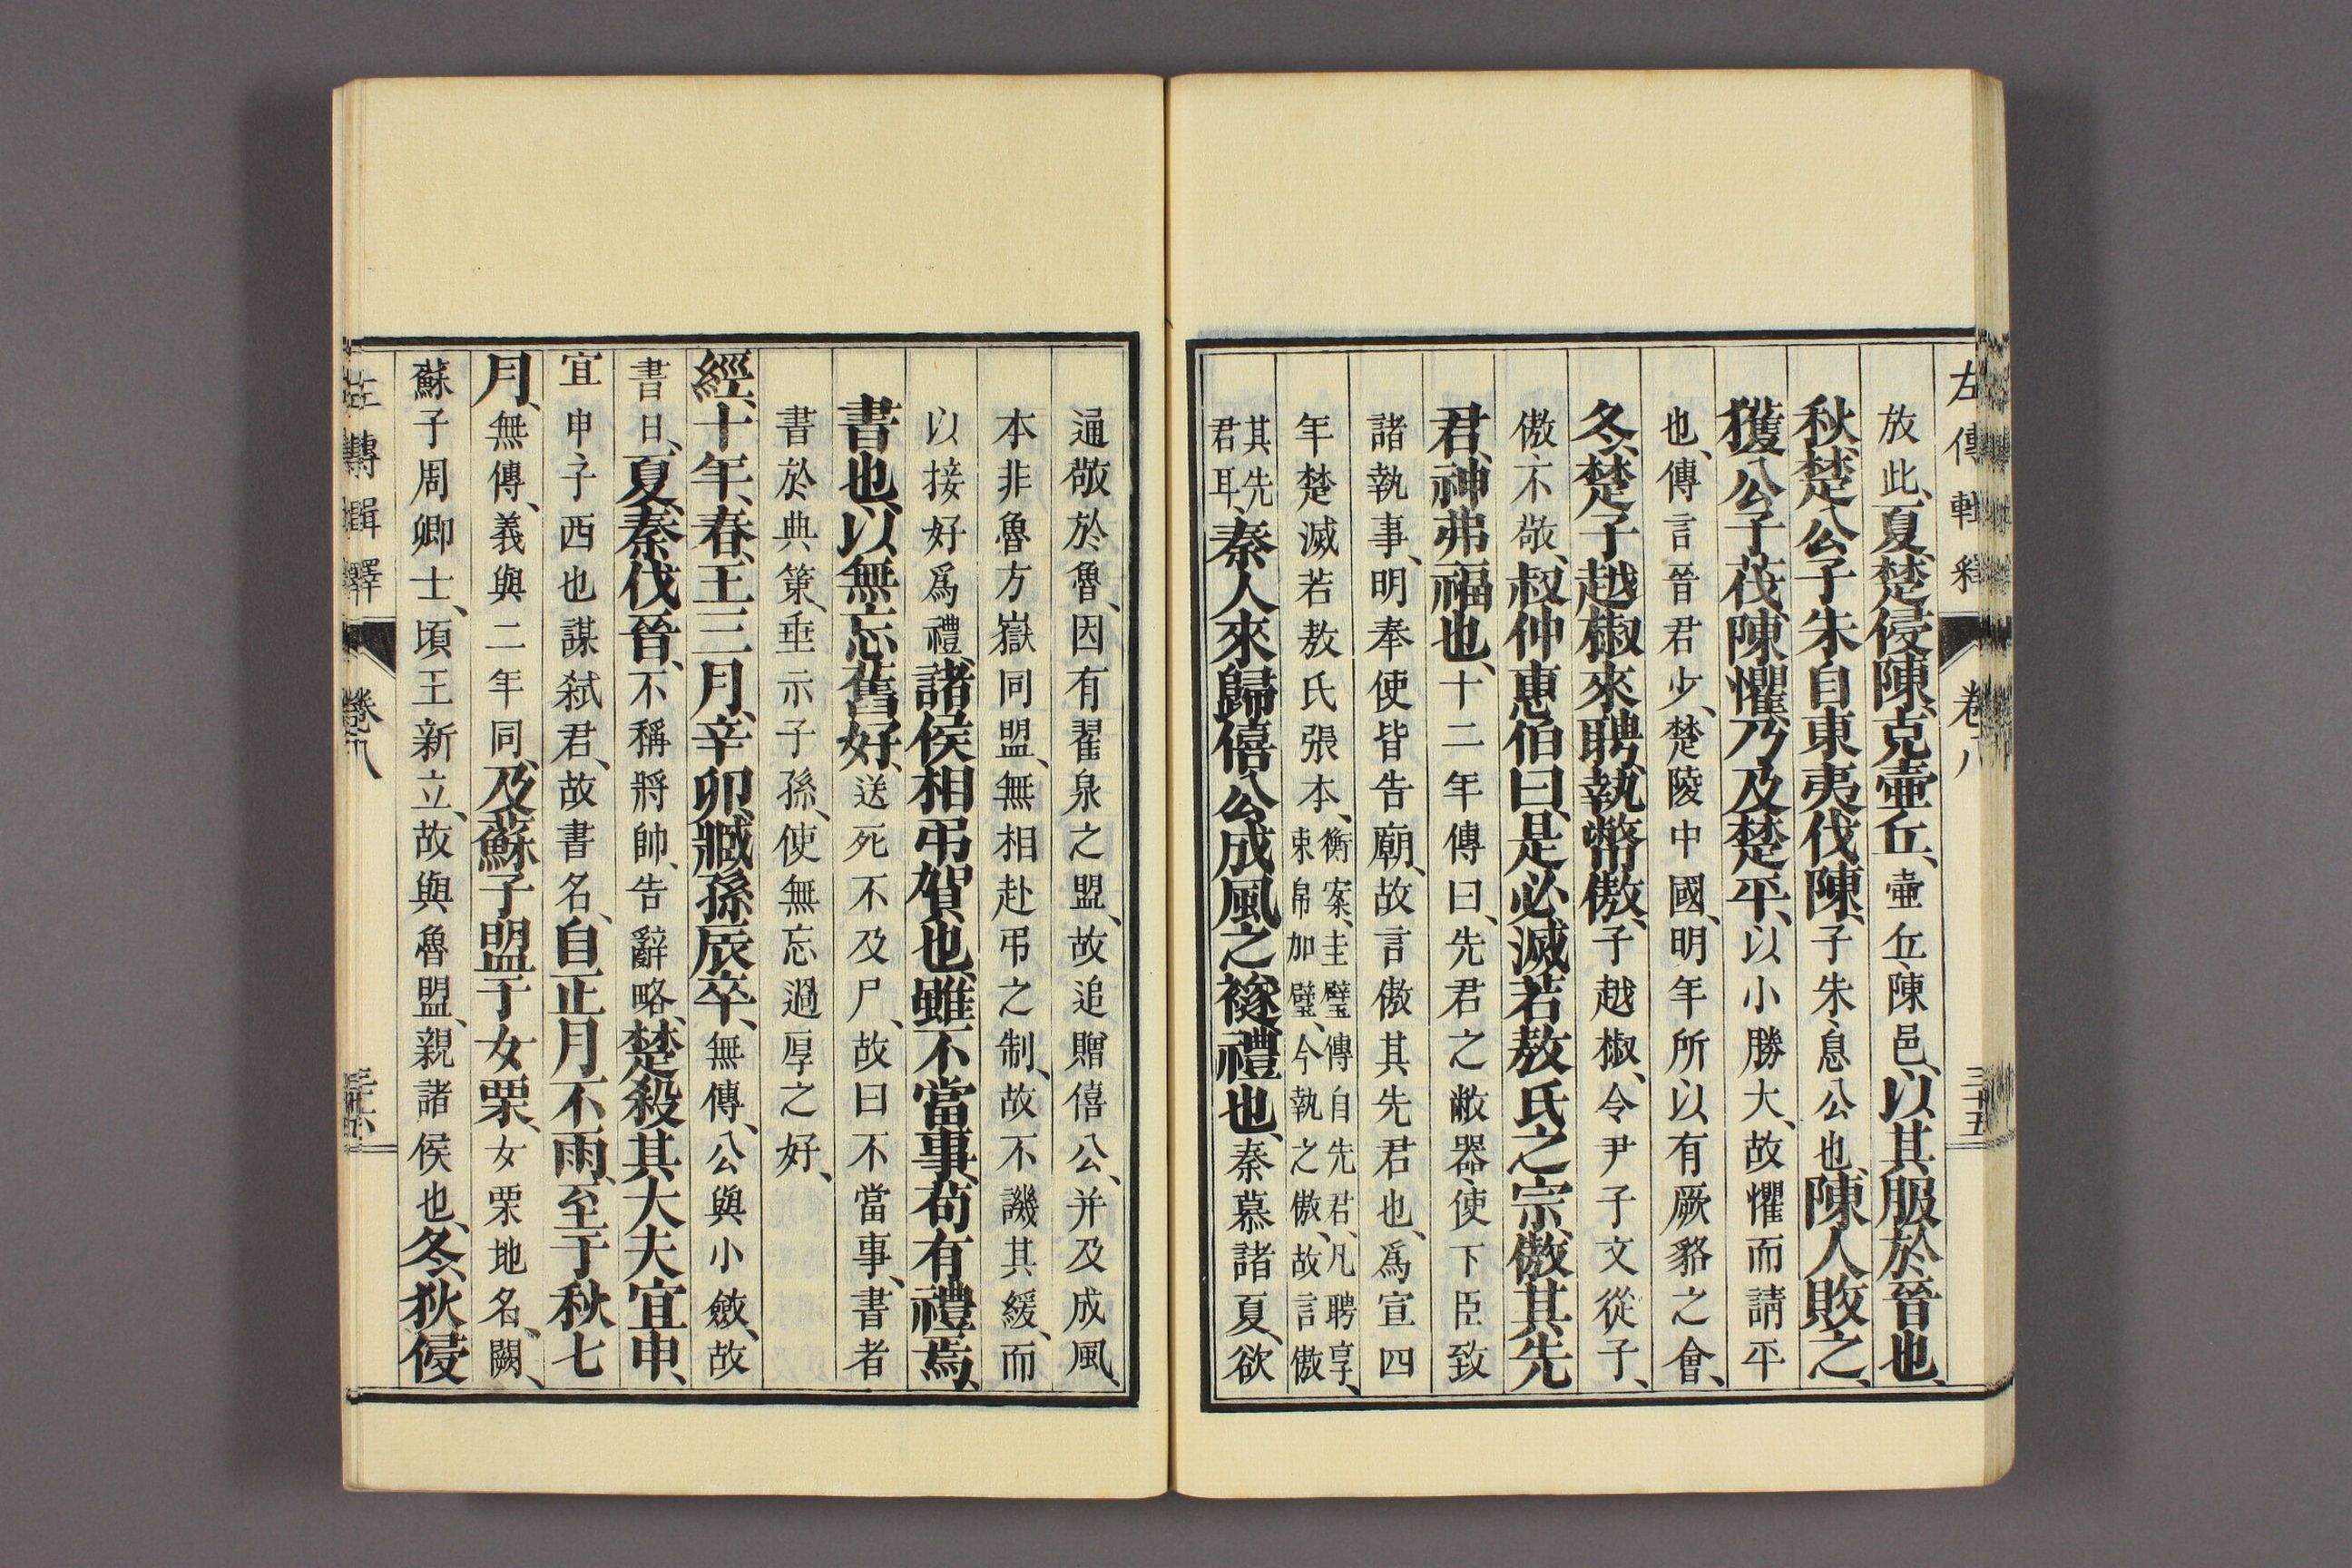 左傳輯釋 卷八 三十五
放此、夏、楚侵陳、克壷丘、壷丘、陳邑、以其服於晉也、
秋、楚公子朱自東夷伐陳、子朱、息公也、陳人敗之、
獲公子茷、陳懼、乃及楚平、以小勝大、故懼而請平
也、傳言晉君少、楚陵中國、明年所以有厥貉之會、
冬、楚子越椒來聘、執幣傲、子越椒、令尹子文從子、
傲、不敬、叔仲惠伯曰、是必滅若敖氏之宗、傲其先
君、神弗福也、十二年傳曰、先君之敝器、使下臣致
諸執事、明奉使皆告廟、故言傲其先君也、爲宣四
年楚滅若敖氏張本、衡案、圭璧傳自先君、凡聘享、束帛加璧、今執之傲、故言傲
其先君耳、秦人來歸僖公成風之襚、禮也、秦慕諸夏、欲
通敬於魯、因有翟泉之盟、故追贈僖公、并及成風、
本非魯方嶽同盟、無相赴弔之制、故不譏其緩、而
以接好爲禮、諸侯相弔賀也、雖不當事、苟有禮焉、
書也、以無忘舊好、送死不及尸、故曰不當事、書者
書於典策、垂示子孫、使無忘過厚之好、
經、十年、春、王三月、辛卯、臧孫辰卒、無傳、公與小斂、故
書日、夏、秦伐晉、不稱將帥、告辭略、楚殺其大夫宜申、
宜申、子西也、謀弑君、故書名、自正月不雨、至于秋七
月、無傳、義與二年同、及蘇子盟于女栗、女栗地名、闕、
蘇子周卿士、頃王新立、故與魯盟、親諸侯也、冬、狄侵
左傳輯釋 卷八 三十六